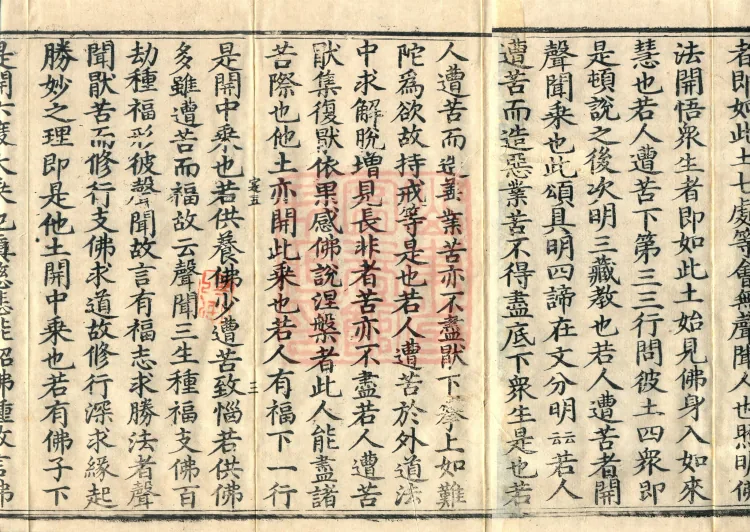 者即如此土七處等會無聲聞人也照明佛
法開悟衆生者即如此土始見佛身入如來
慧也若人遭苦下第三三行問彼土四衆即
是頓說之後次明三藏教也若人遭苦者開
聲聞乗也此頌具明四諦在文分明云云若人
遭苦而造惡業苦不得盡底下衆生是也若
人遭苦而造善業苦亦不盡猒下攀上如難
陀爲欲故持戒等是也若人遭苦於外道法
中求解脫增見長非者苦亦不盡若人遭苦
猒集復猒依果感佛說涅槃者此人能盡諸
苦際也他土亦開此乗也若人有福下一行
是開中乗也若供養佛少遭苦致惱若供佛
多雖遭苦而福故云聲聞三生種福支佛百
劫種福形彼聲聞故言有福志求勝法者聲
聞猒苦而修行支佛求道故修行深求緣起
勝妙之理即是他土開中乗也若有佛子下
是開六度大乗也
三